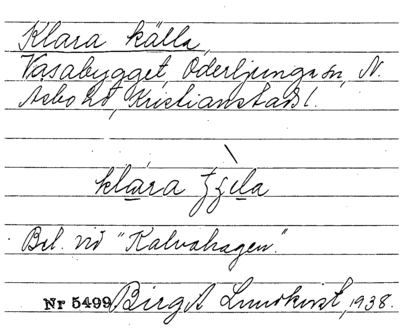 Klara källa,
Vasabygget, Oderljunga sn, N.
Åsbo hd, Kristianstads l.
klara
Bel. vid "Kalvahagen".
Nr 5499 Birgit Lundkvist, 1938.